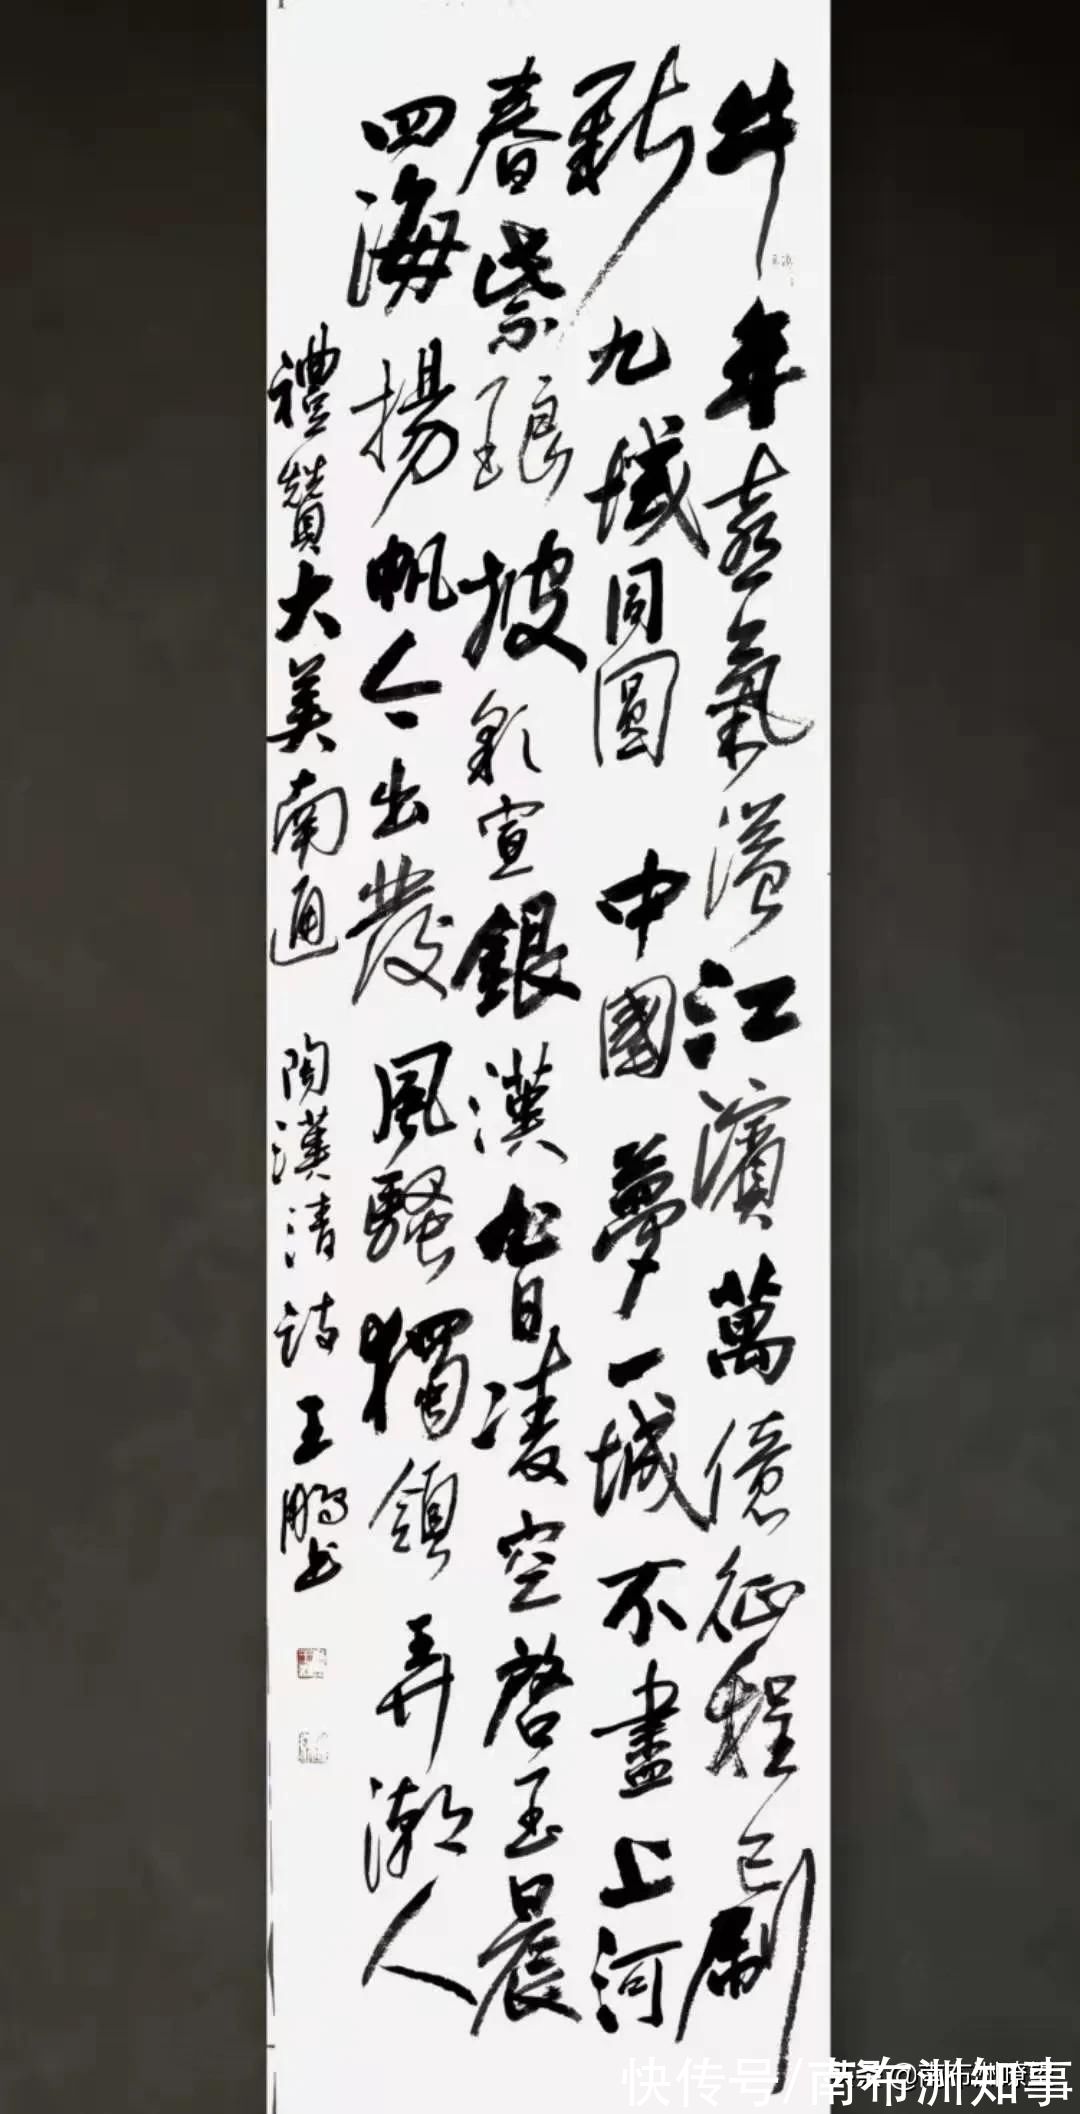 牛年喜氣溢江濱萬億征程已刷
新九域同圓中國夢一城不盡上河
春紫琅披彩宣銀漢旭日淩空啓玉晨
四海揚帆今出發風騷獨領弄潮人
禮贊大美南通 陶漢清詩 王鵬书
快传号/南布洲知事